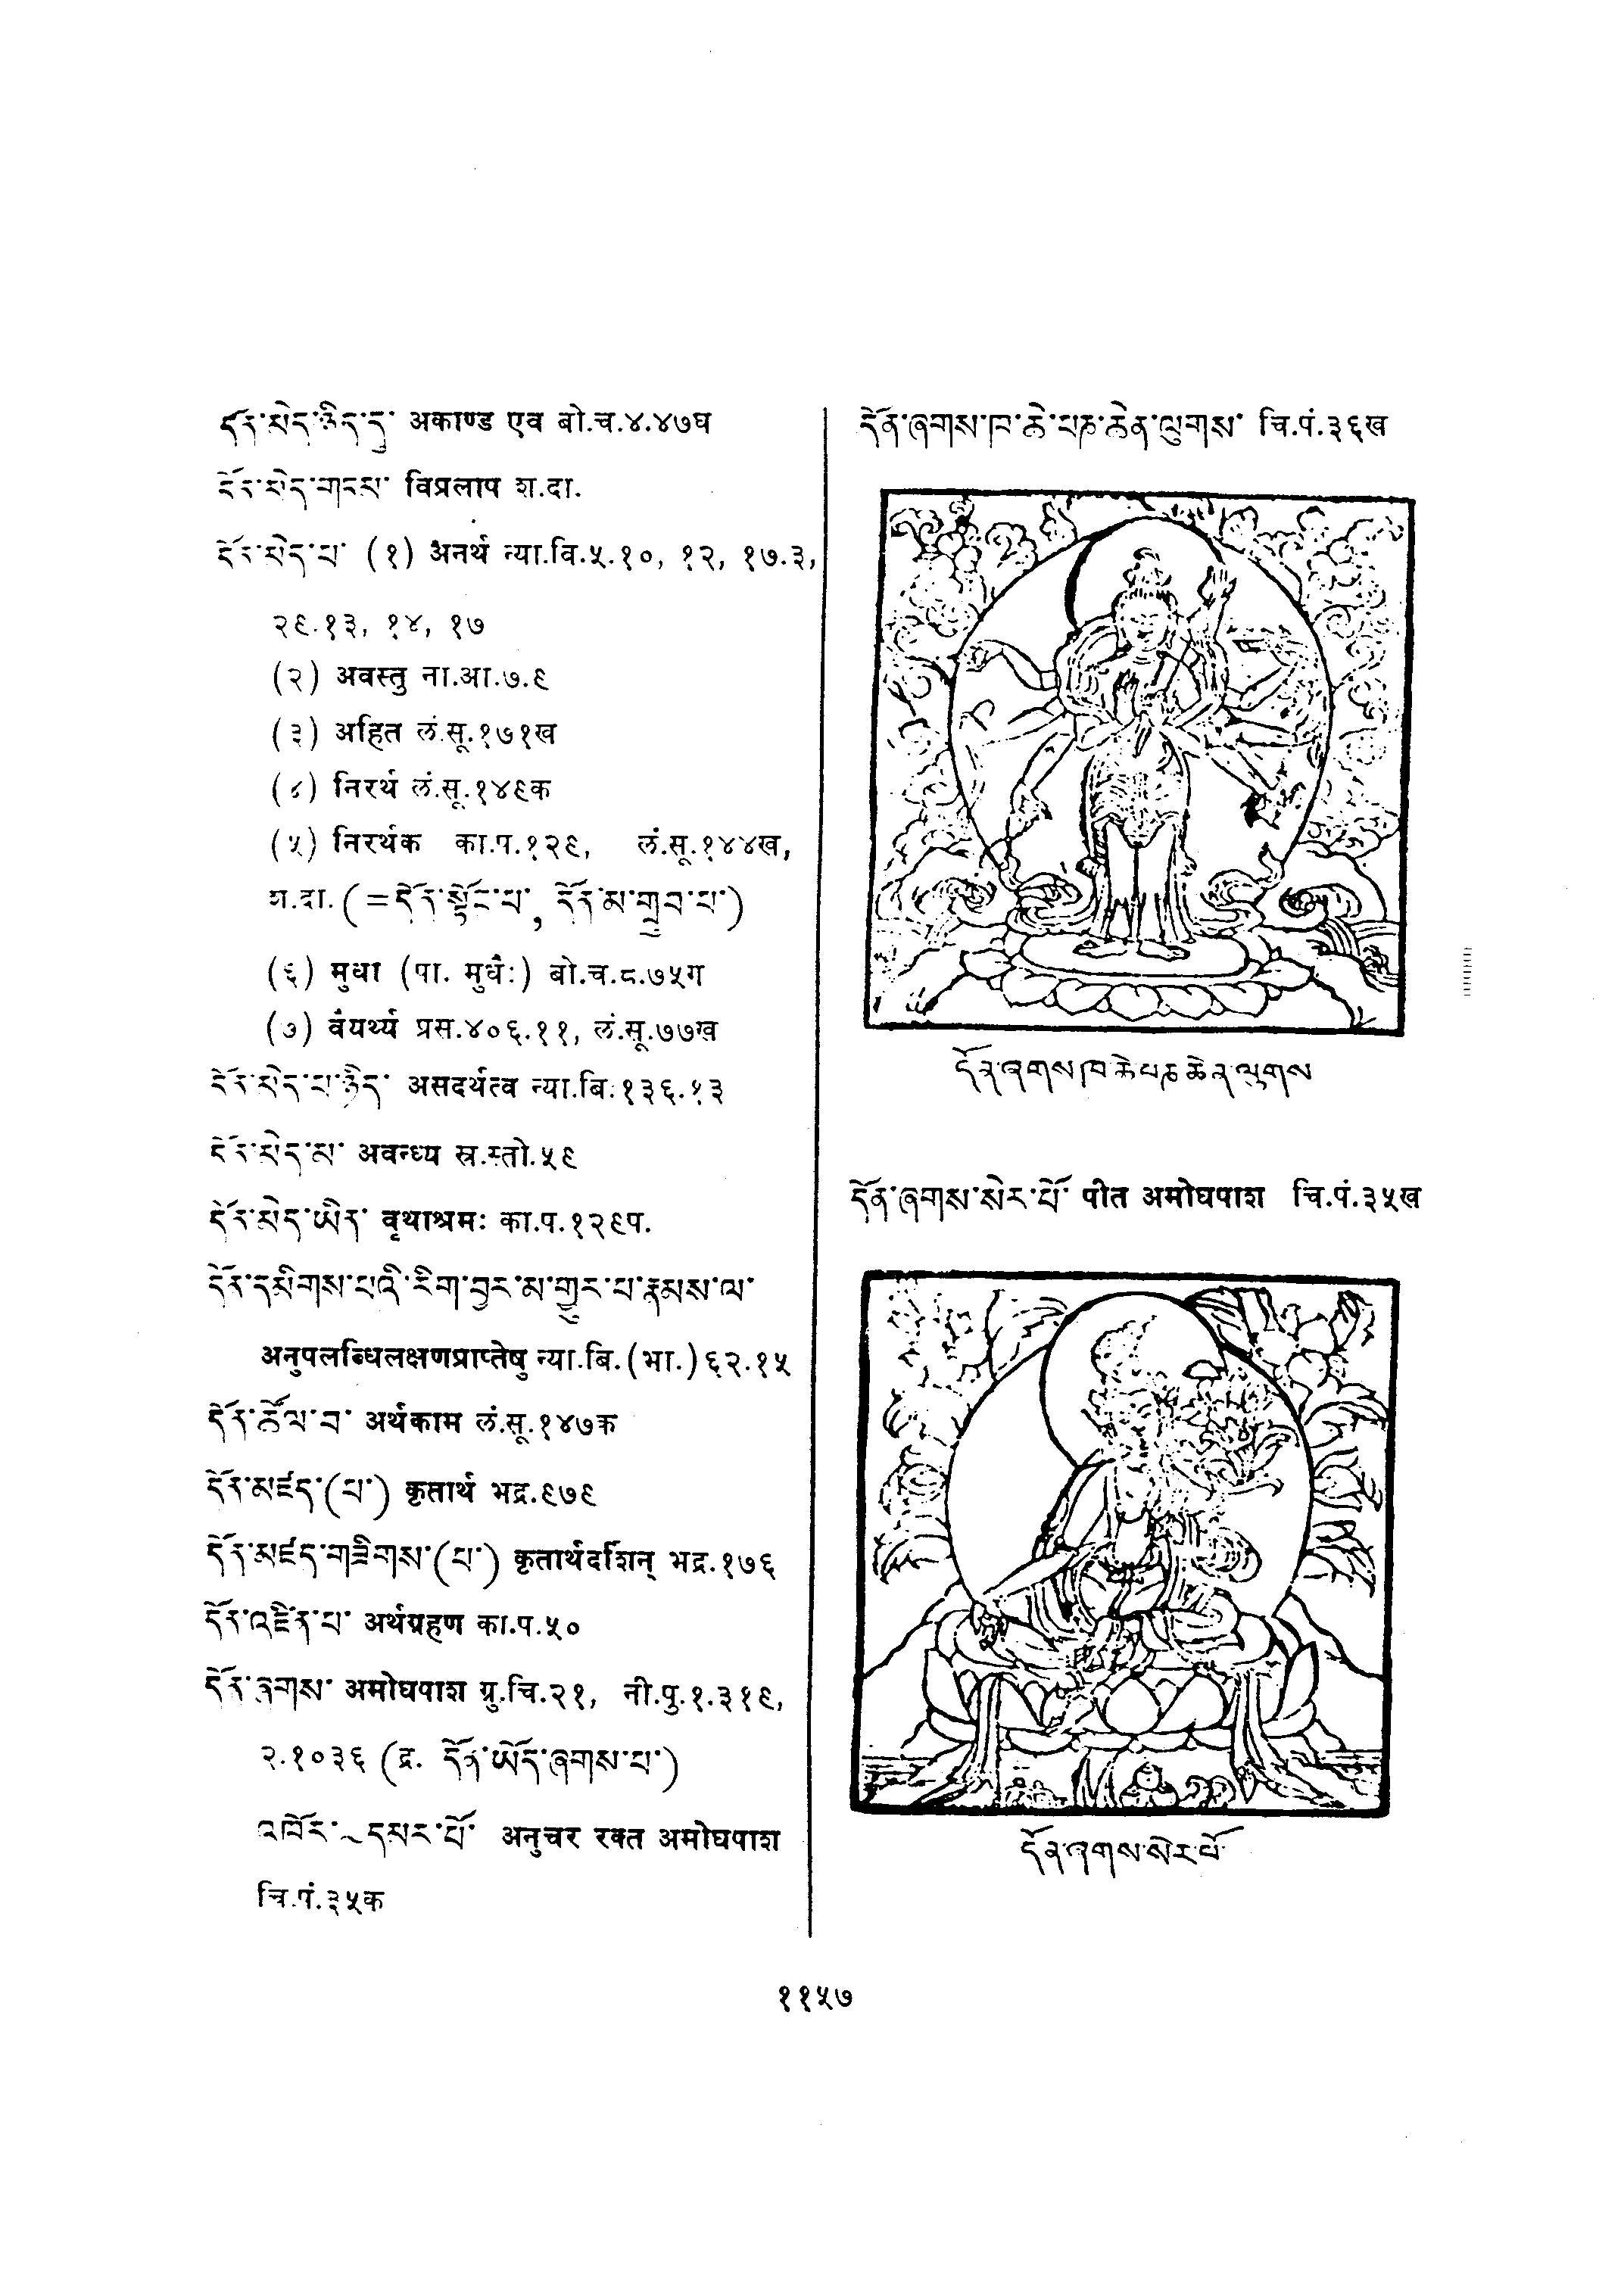 དོན་མེད་ཉིད་དུ་ अकाण्ड एव बो.च.४.४७घ
དོན་མེད་གདངས་ विप्रलाप श.दा.
དོན་མེད་པ་ (१) अनर्थ न्या.बि.५.१०, १२, १७.३,
२९.१३, १४, १७
(२) अवस्तु ना.आ.७.९
(३) अहित लं.सू.१७१ख
(४) निरर्थ लं.सू.१४९क
(५) निरर्थक का.प.१२९, लं.सू.१४४ख,
श.दा. (=དོན་སྟོང་པ་, དོན་མ་གྲུབ་པ་)
(६) मुधा (पा. मुधैः) बो.च.८.७५ग
(७) वैयर्थ्य प्रस.४०६.११, लं.सू.७७ख
དོན་མེད་པ་ཉིད་ असदर्थत्व न्या.बि.१३६.१३
དོན་མེད་མ་ अवन्ध्य स्र.स्तो.५९
དོན་མེད་ཡིན་ वृथाश्रमः का.प.१२९प.
དོན་དམིགས་པའི་རིག་བྱར་མ་གྱུར་པ་རྣམས་ལ་
अनुपलब्धिलक्षणप्राप्तेषु न्या.बि.(भा.)६२.१५
དོན་རྩོལ་བ་ अर्थकाम लं.सू.१४७क
དོན་མཛད་(པ་) कृतार्थ भद्र.९७९
དོན་མཛད་གཟིགས་(པ་) कृतार्थदर्शिन् भद्र.१७६
དོན་འཛིན་པ་ अर्थग्रहण का.प.५०
དོན་ཞགས་ अमोघपाश ग्रु.चि.२१, नी.पु.१.३१९,
२.१०३६ (द्र. དོན་ཡོད་ཞགས་པ་)
འཁོར་~དམར་པོ་ अनुचर रक्त अमोघपाश
चि.पं.३५क
དོན་ཞགས་ཁ་ཆེ་པཎ་ཆེན་ལུགས་ चि.पं.३६ख
དོན་ཞགས་ཁ་ཆེ་པཎ་ཆེན་ལུགས
དོན་ཞགས་སེར་པོ་ पीत अमोघपाश चि.पं.३५ख
དོན་ཞགས་སེར་པོ་
११५७